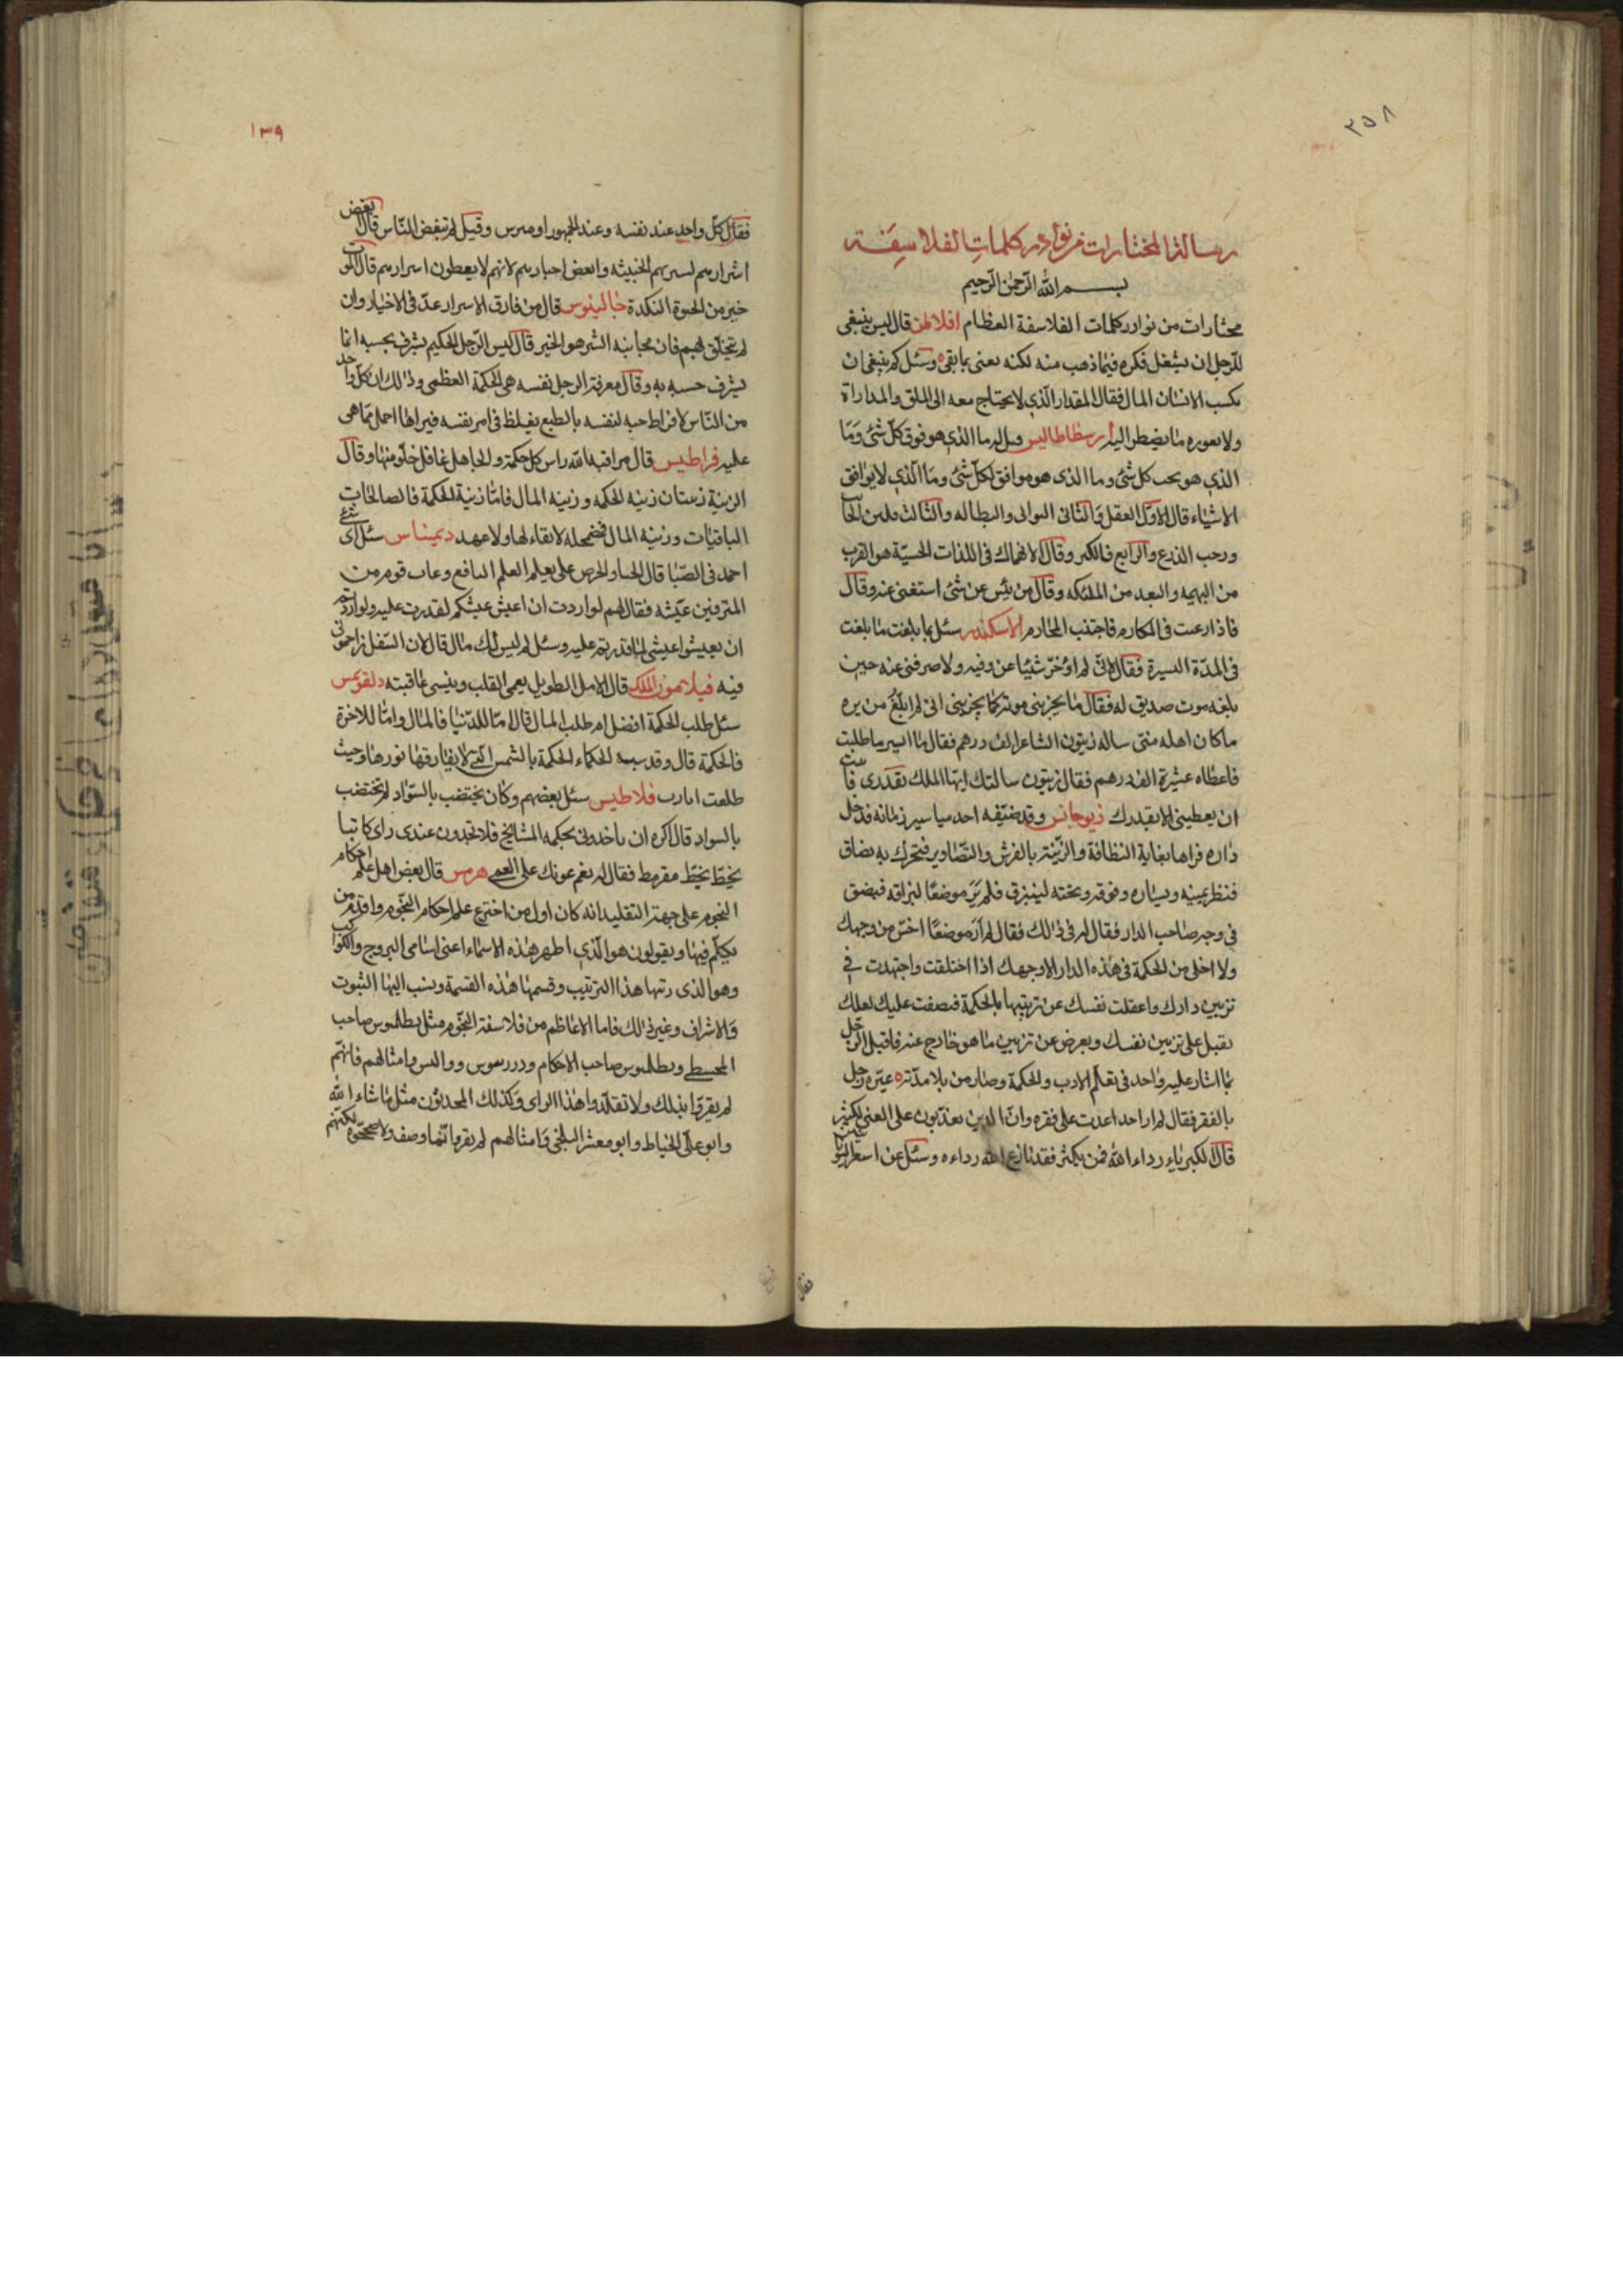 ٣٥٨
رسالة المختارات من نوادر كلمات الفلاسفة
بسم الله الرحمن الرحيم
مختارات من نوادر كلمات الفلاسفة العظام افلاطن قال ليس ينبغى
للرجل ان يشغل فكره فيما ذهب منه لكنه يعنى بما بقى وسئل كم ينبغى ان
يكسب الانسان المال فقال المقدار الذى لا يحتاج معه الى الملق والمداراة
ولا يعوره ما يضطر اليه ارسطاطاليس قيل له ما الذى هو فوق كل شئ وما
الذى هو يحب كل شئ وما الذى هو موافق لكل شئ وما الذى لا يوافق
الاشياء قال الاول العقل والثانى التوانى والبطاله والثالث فلين
ورحب الذرع والرابع فالكبر وقال الانهماك فى اللذات الحسية هو القرب
من البهيمه والبعد من الملئكه وقال من يئس عن شئ استغنى عنه وقال
فاذا رعبت فى المكارم فاجتنب المحارم الاسكندر سئل بما بلغت ما بلغت
فى المدة اليسيرة فقال لانى لم اؤخر شيئا عن وقته ولا صرفنى عنه حين
بلغه موت صديق له فقال ما يحزننى موته كما يحزننى انى لم ابلغ من بره
ما كان اهله منى ساله زيتون الشاعر الف درهم فقال ما ايسر ما طلبت
فاعطاه عشرة الف درهم فقال زيتون سالتك ايها الملك بقدرى
ان يعطينى الا بقدرك ذيوجانس وقد ضيفه احد مياسير زمانه فدخل
داره فراها بغاية النظافة والزينة بالفرش والتصاوير فتحرك به بصاق
فنظر يمينه ويساره وفوقه وتحته ليبزق فلم ير موضعا لبزاقه فبصق
فى وجه صاحب الدار فقال له فى ذالك فقال لم ار موضعا اخس من وجهك
ولا اخلى من الحكمة فى هذه الدار الا وجهك اذا اختلقت واجتهدت فى
تزيين دارك واغفلت نفسك عن تزيينها بالحكمة فبصقت عليك لعلك
تقبل على تزيين نفسك وتعرض عن تزيين ما هو خارج عنه فاقبل الرجل
بما اشار عليه واحد فى تعلم الادب والحكمة وصار من تلامذته عيره رجل
بالفقر فقال لم ار احدا عدت على فقره وان الذين يعذبون على الغنى لكثير
قال الكبرياء رداء الله فمن تكبر فقد نازع الله رداءه وسئل عن اشعر
فقال
١٣٩
فقال كل واحد عند نفسه وعند الجمهور اوميرس وقيل لم تبغض الناس قال ابغض
اشرارهم لسيرتهم الخبيثه وابغض اخيارهم لانهم لا يعظون اشرارهم قال الموت
خير من الحيوة النكدة جالينوس قال من فارق الاشرار عد فى الاخيار وان
لم يتخلق بهم فان مجانبه الشر هو الخير قال ليس الرجل الحكيم يشرف بحسبه انما
يشرف حسبه به وقال معرفة الرجل نفسه هى الحكمة العظمى وذالك ان كل واحد
من الناس لافراط حبه لنفسه بالطبع يغلظ فى امر نفسه فيراها اجمل مما هى
عليه فراطيس قال مراقبة الله راس كل حكمة والجاهل غافل خلو منها وقال
الزينة زينتان زينه الحكمه وزينه المال فاما زينة الحكمة فالصالحات
الباقيات وزينه المال فمضمحله لا بقاء لها ولا عهد ديمناس سئل اى شئ
احمد فى الصبا قال الحيا والحرص على تعلم العلم النافع وعاب قوم من
المترفين عيشه فقال لهم لو اردت ان اعيش عيشكم لقدرت عليه ولو اردتم
ان تعيشوا عيشى لما قدرتم عليه وسئل لم ليس لك مال قال لان السفل زاحمونى
فيه فيلاتمون الملك قال الامل الطويل يعمى القلب وينسى عاقبته دلفويس
سئل طلب الحكمة افضل ام طلب المال قال اما للدنيا فالمال واما للاخرة
فالحكمة قال وقد شبه الحكماء الحكمة بالشمس التى لا يفارقها نورها وحيث
طلعت انارت فلاطيس سئل بعضهم وكان يختضب بالسواد لم تختضب
بالسواد قال اكره ان ياخذونى بحكمه المشايخ فلا تجدون عندى راى كاتبا
يخط بخط مقرمط فقال له نعم عونك على العمى هرمس قال بعض اهل علم احكام
النجوم على جهة التقليد انه كان اول من اخترع علم احكام النجوم واقدم من
يكلم فيها ويقولون هو الذى اظهر هذه الاسماء اعنى اسامى البروج والكواكب
وهو الذى رتبها هذا الترتيب وقسمها هذه القسمة ونسب اليها الثبوت
والاشراف وغير ذالك فاما الاعاظم من فلاسفة النجوم مثل بطلميوس صاحب
المجسطى وبطلميوس صاحب الاحكام ودررسوس ووالس وامثالهم فانهم
لم يقروا بذلك ولا تقلدوا هذا الراى وكذلك المحدثون مثل ما شاء الله
وابو على الخياط وابو معشر البلخى وامثالهم لم يقروا انما وصف ولا صححوه لكنهم